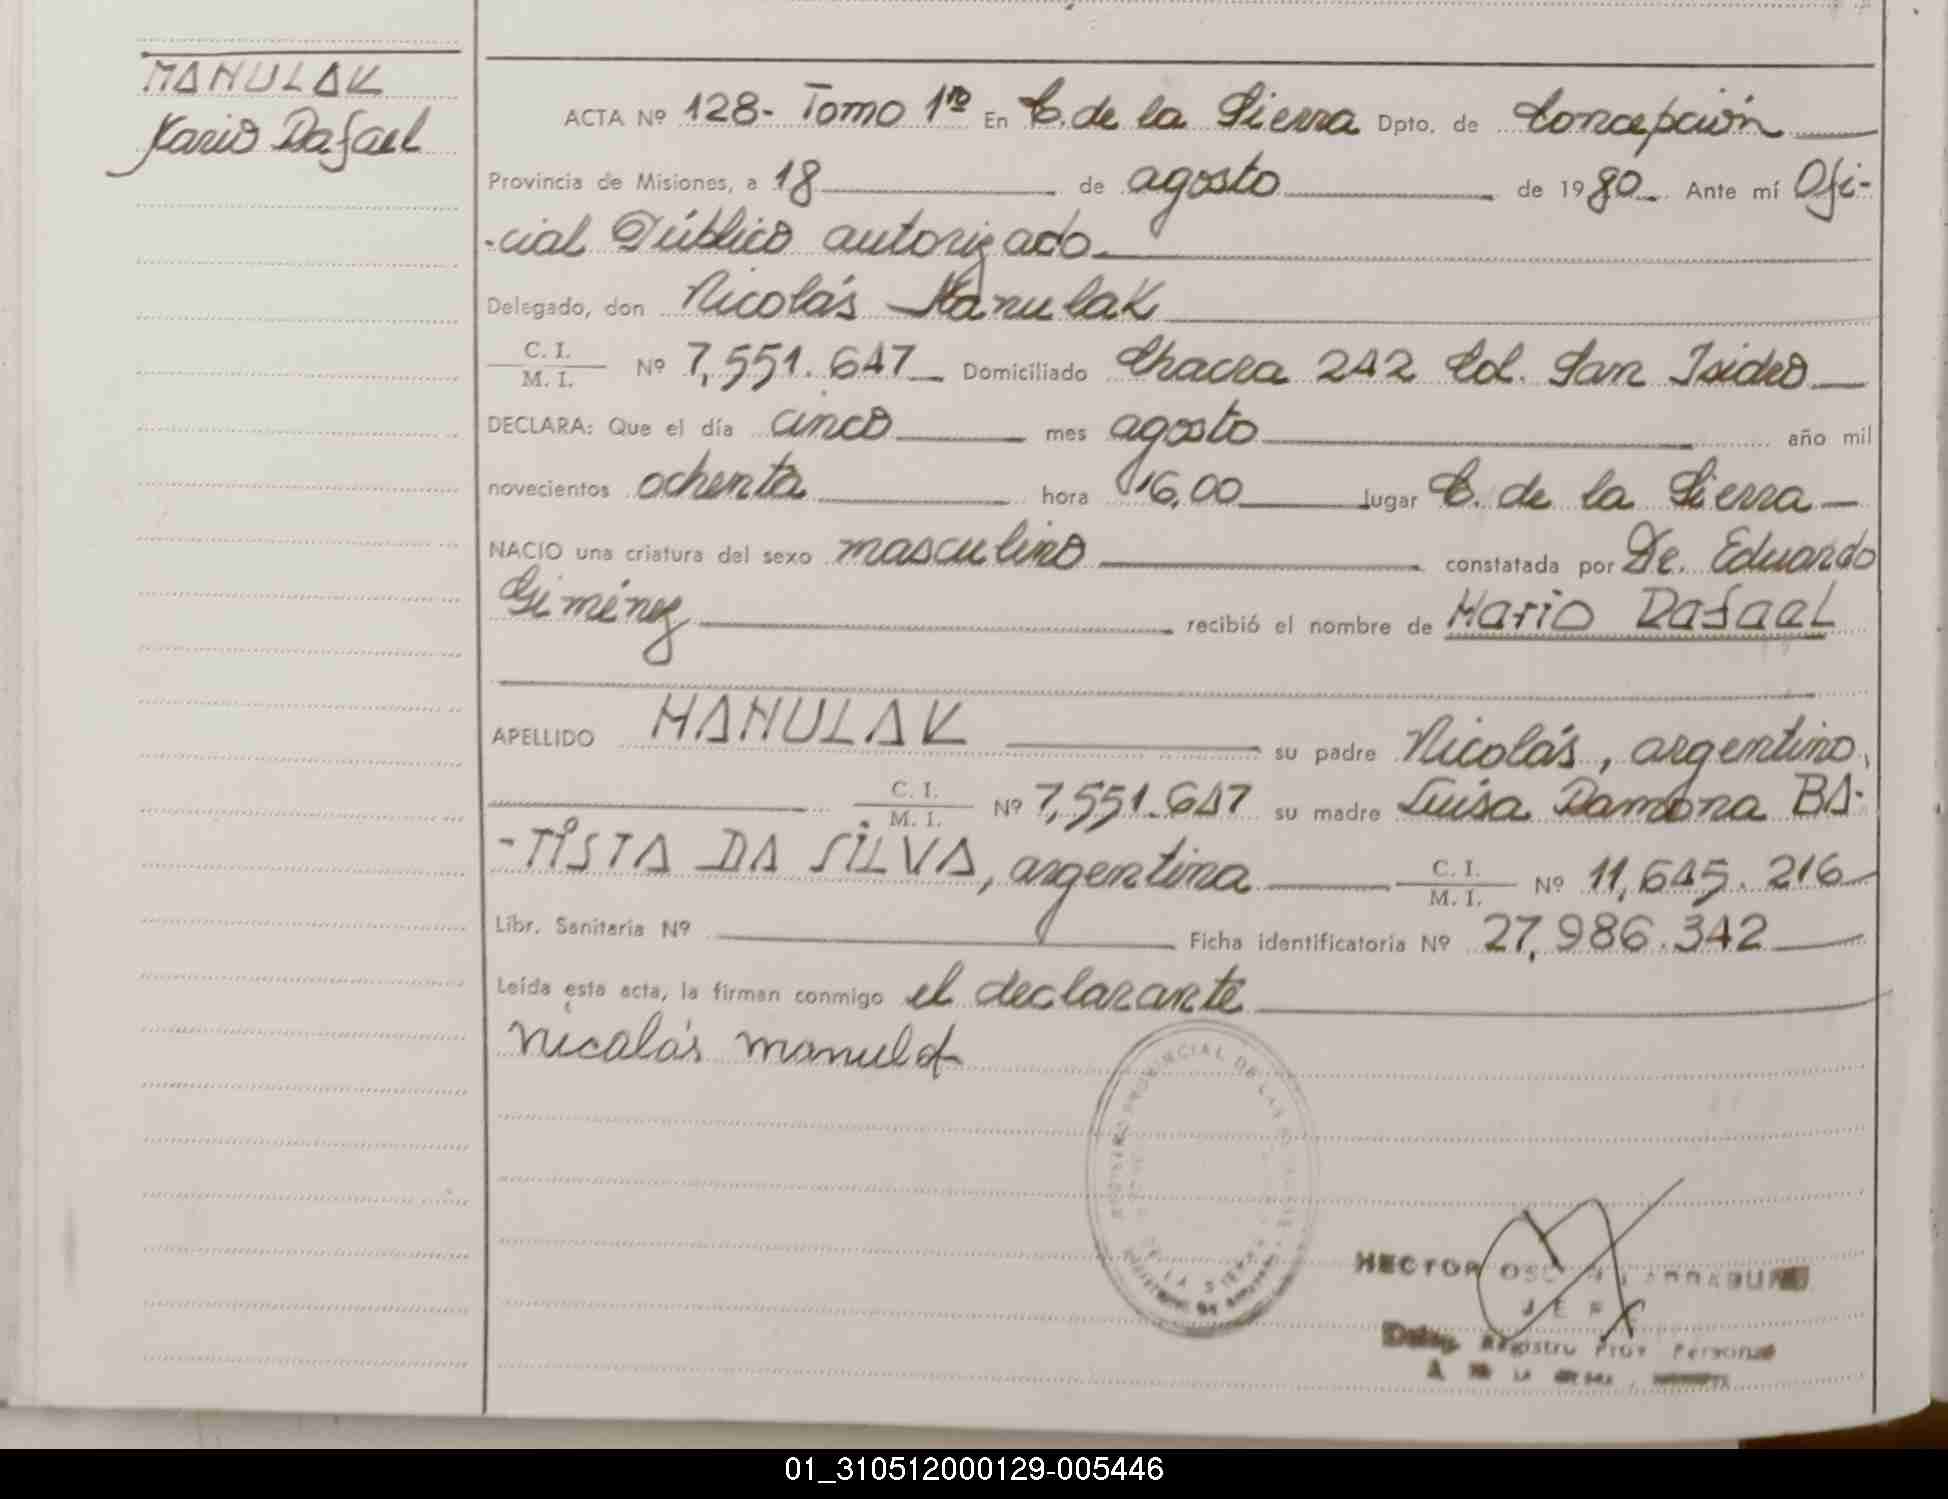 MANULAK
Mario Rafael
ACTA Nº 128- Tomo 1ro En C. de la Sierra Dpto. de Concepción
Provincia de Misiones, a 18 de agosto de 1980 Ante mí Ofi-
-cial Público autorizado
Delegado, don Nicolás Manulak
C. I.
M. I. Nº 7,551.647 Domiciliado Chacra 242 Col. San Isidro
DECLARA: Que el día cinco mes agosto año mil
novecientos ochenta hora 16,00 lugar C. de la Sierra
NACIO una criatura del sexo masculino constatada por Dr. Eduardo
Giménez recibió el nombre de Mario Rafael
APELLIDO MANULAK su padre Nicolás, argentino,
C. I.
M. I. Nº 7,551.647 su madre Luisa Ramona BA-
-TISTA DA SILVA, argentina C. I.
M. I. Nº 11,645.216
Libr. Sanitaria Nº Ficha identificatoria Nº 27,986.342
Leída esta acta, la firman conmigo el declarante
nicolás manulak
PROVINCIAL DE LAS
LA SIERRA
HECTOR
JEFE
Deleg. Registro Prov. Personas
LA
01_310512000129-005446